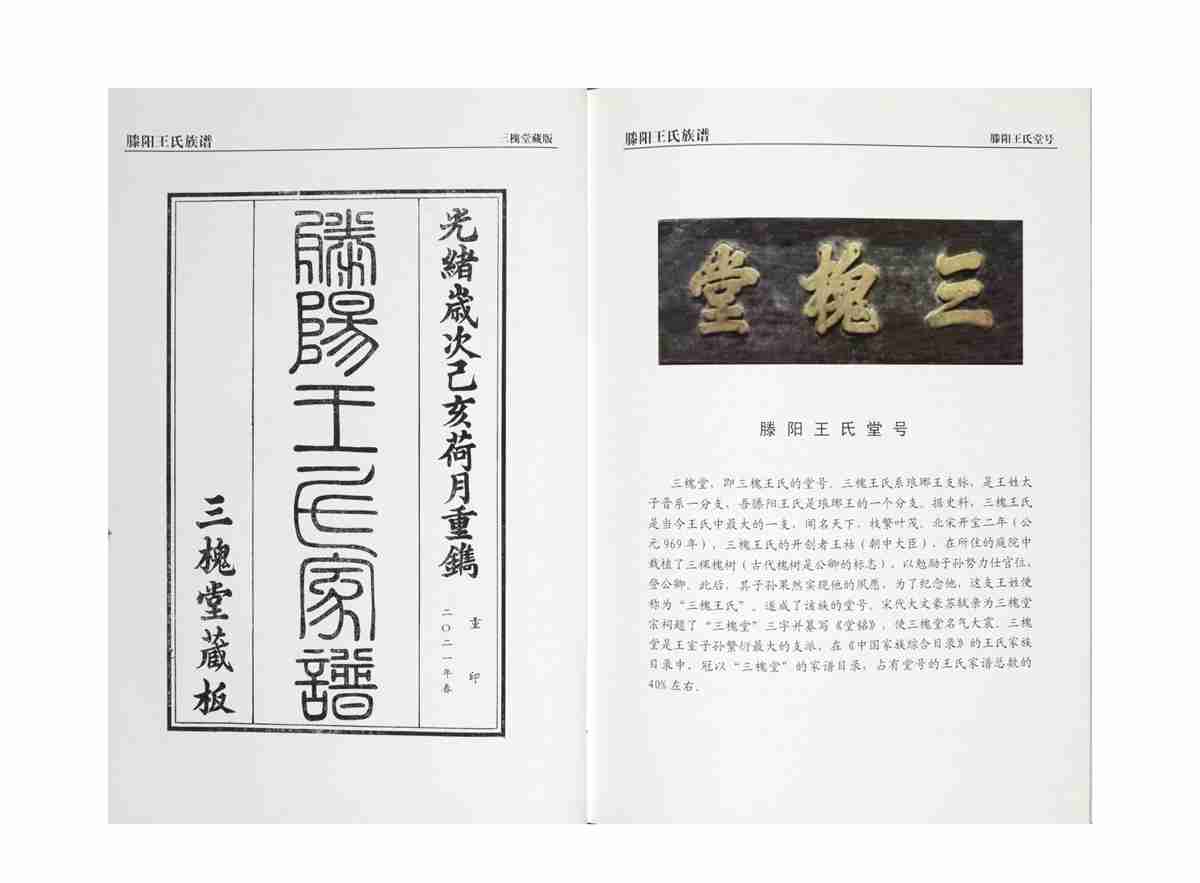 滕阳王氏族谱
三槐堂藏版
光緒歲次己亥荷月重鐫
重印
二〇二一年春
滕陽王氏家譜
三槐堂藏板
滕阳王氏族谱
滕阳王氏堂号
三槐堂
滕阳王氏堂号
三槐堂,即三槐王氏的堂号。三槐王氏系琅琊王支脉,是王姓太
子晋系一分支,吾滕阳王氏是琅琊王的一个分支。据史料,三槐王氏
是当今王氏中最大的一支,闻名天下,枝繁叶茂。北宋开宝二年(公
元969年),三槐王氏的开创者王祜(朝中大臣),在所住的庭院中
栽植了三棵槐树(古代槐树是公卿的标志),以勉励子孙努力仕官位,
登公卿。此后,其子孙果然实现他的夙愿,为了纪念他,这支王姓便
称为“三槐王氏”。遂成了该族的堂号。宋代大文豪苏轼亲为三槐堂
宗祠题了“三槐堂”三字并纂写《堂铭》,使三槐堂名气大震。三槐
堂是王室子孙繁衍最大的支派,在《中国家族综合目录》的王氏家族
目录中,冠以“三槐堂”的家谱目录,占有堂号的王氏家谱总数的
40%左右。